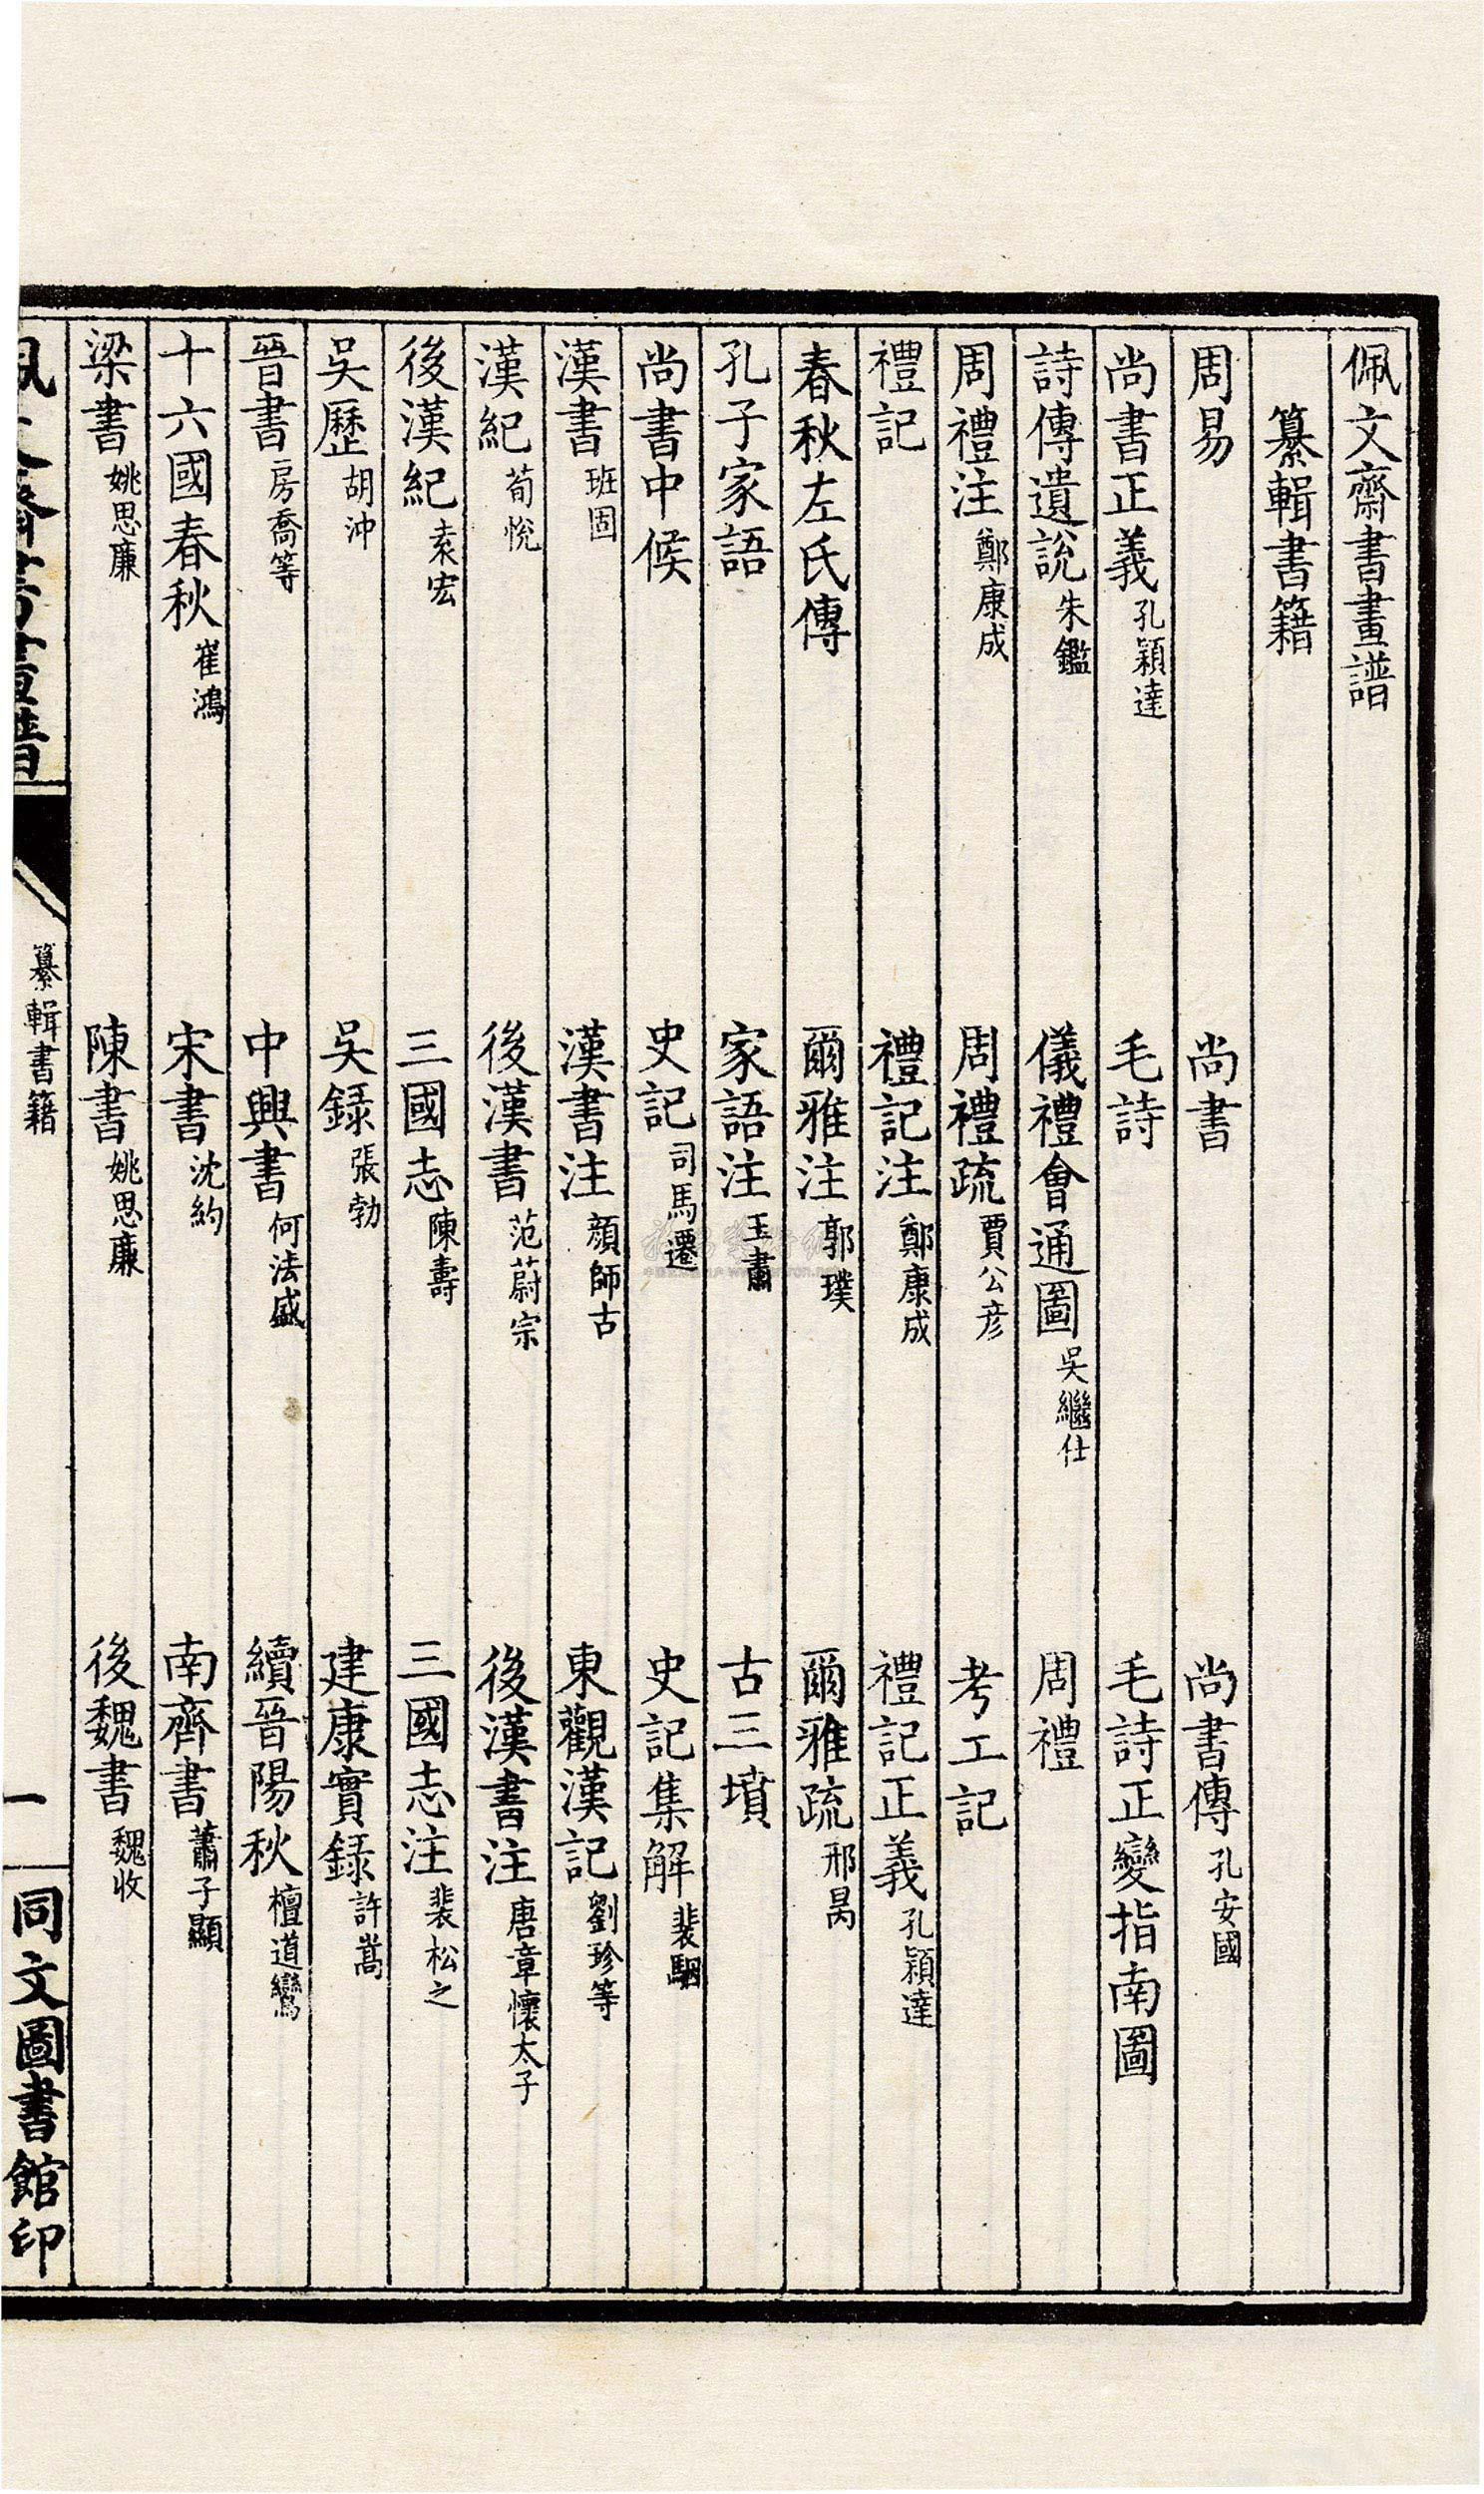 佩文齋書畫譜
纂輯書籍
周易　尚書　尚書傳 孔安國
尚書正義 孔穎達　毛詩　毛詩正變指南圖
詩傳遺說 朱鑑　儀禮會通圖 吳繼仕　周禮
周禮注 鄭康成　周禮疏 賈公彦　考工記
禮記　禮記注 鄭康成　禮記正義 孔穎達
春秋左氏傳　爾雅注 郭璞　爾雅疏 邢昺
孔子家語　家語注 王肅　古三墳
尚書中候　史記 司馬遷　史記集解 裴駰
漢書 班固　漢書注 顔師古　東觀漢記 劉珍等
漢紀 荀悅　後漢書 范蔚宗　後漢書注 唐章懷太子
後漢紀 袁宏　三國志 陳壽　三國志注 裴松之
吳歷 胡沖　吳録 張勃　建康實録 許嵩
晉書 房喬等　中興書 何法盛　續晉陽秋 檀道鸞
十六國春秋 崔鴻　宋書 沈約　南齊書 蕭子顯
梁書 姚思廉　陳書 姚思廉　後魏書 魏收
佩文齋書畫譜　纂輯書籍　一　同文圖書館印